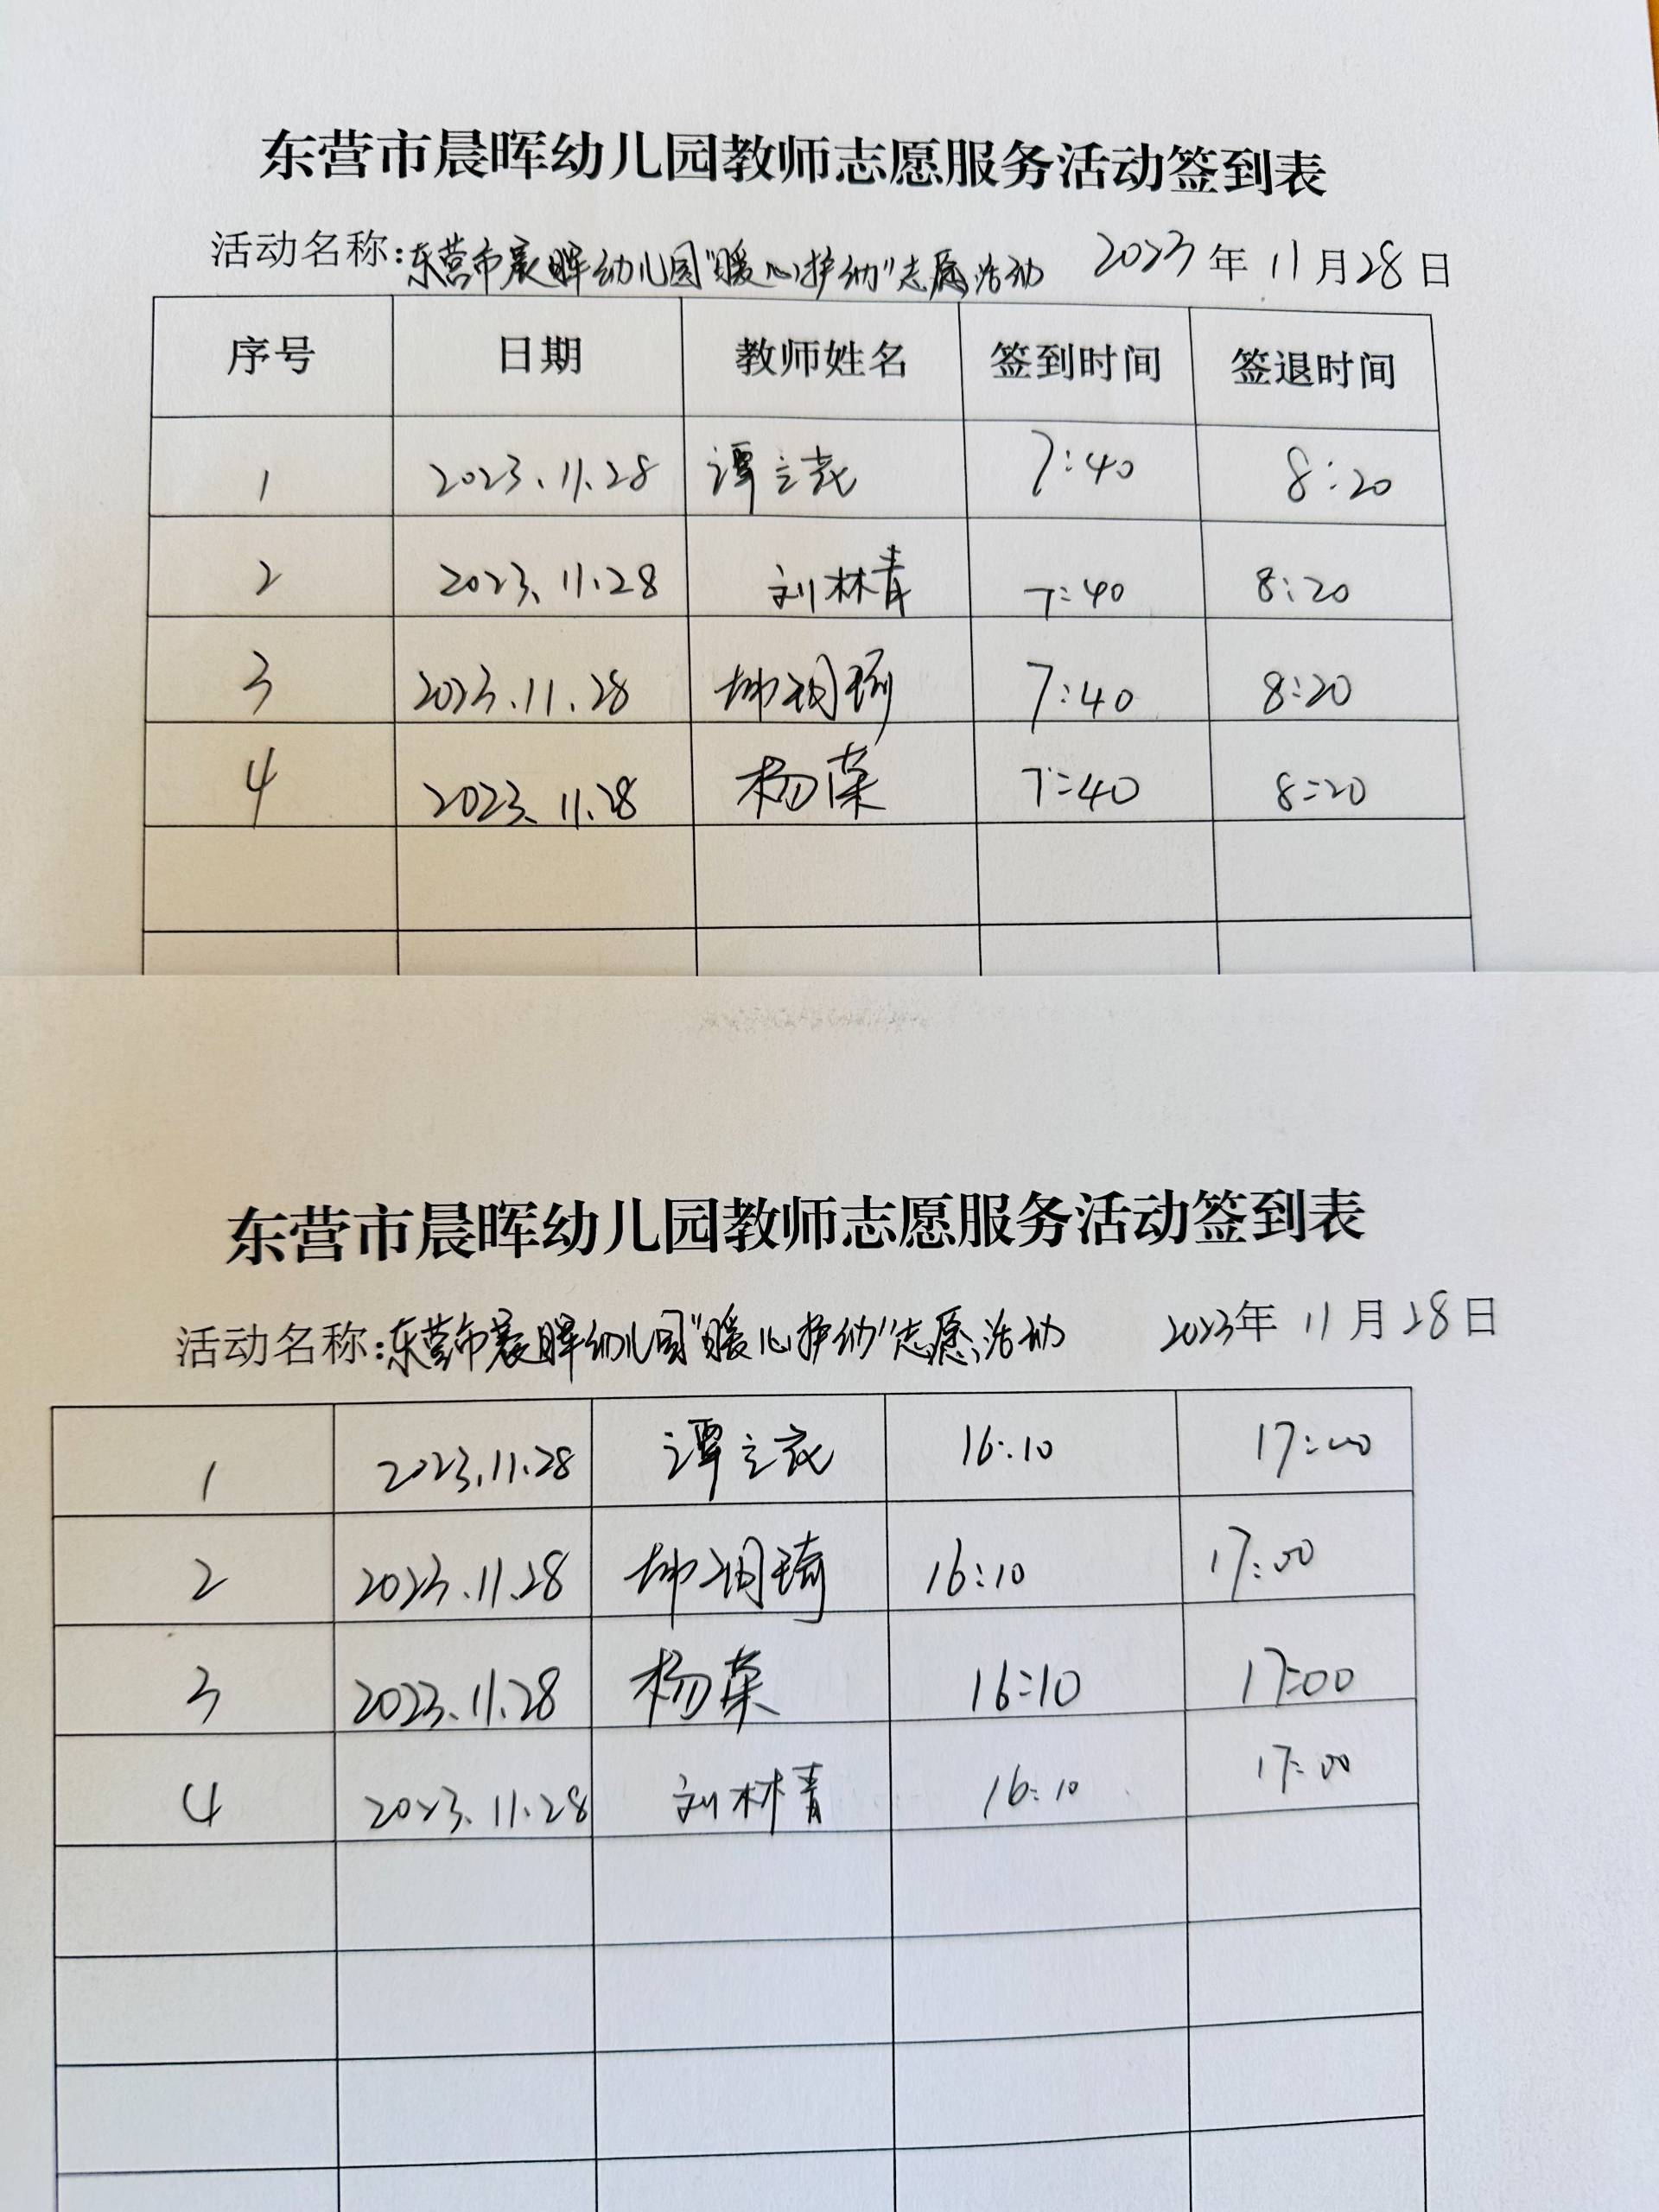 东营市晨晖幼儿园教师志愿服务活动签到表
活动名称:东营市晨晖幼儿园"暖心护幼"志愿活动 2023年11月28日
序号 日期 教师姓名 签到时间 签退时间
1 2023.11.28 谭立 7:40 8:20
2 2023.11.28 刘林青 7:40 8:20
3 2023.11.28 7:40 8:20
4 2023.11.28 杨荣 7:40 8:20
东营市晨晖幼儿园教师志愿服务活动签到表
活动名称:东营市晨晖幼儿园"暖心护幼"志愿活动 2023年11月28日
1 2023.11.28 谭立 16:10 17:00
2 2023.11.28 16:10 17:00
3 2023.11.28 杨荣 16:10 17:00
4 2023.11.28 刘林青 16:10 17:00